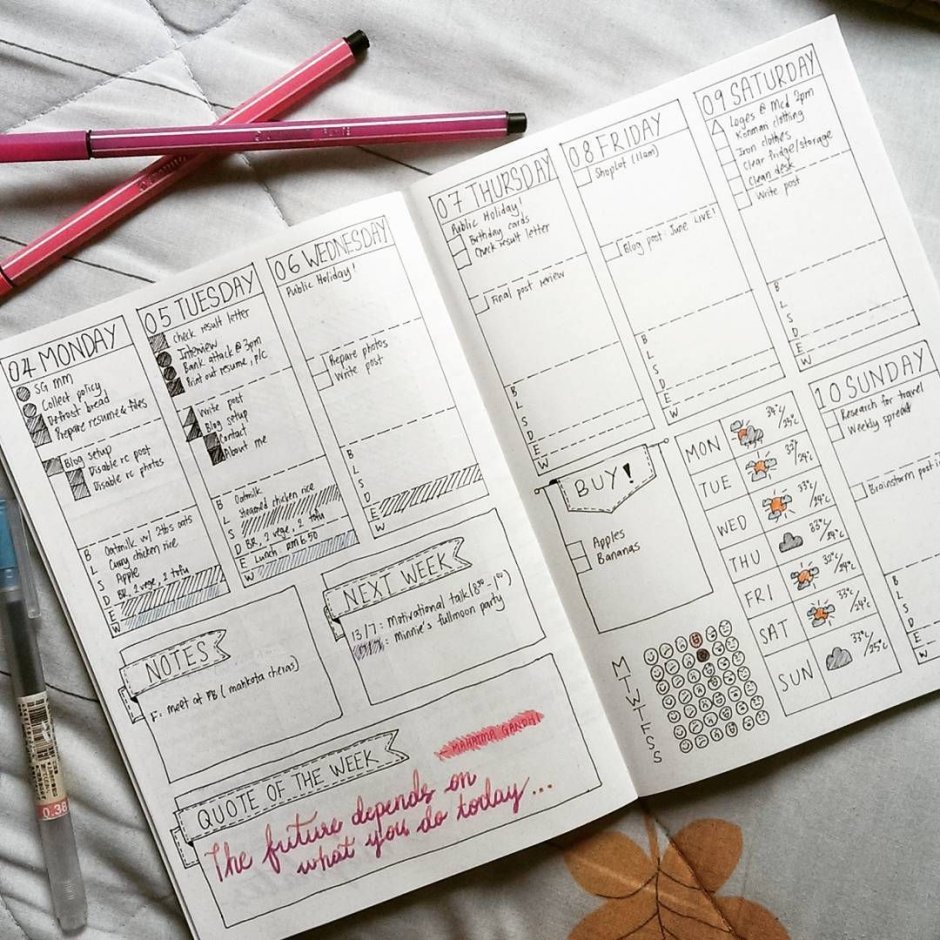 04 MONDAY
SG MM
Collect policy
Defrost bread
Prepare resume & files
Blog setup
Disable rc post
Disable rc photos
B Oatmilk w/ 2tbs oats
L Curry chicken rice
S Apple
D BR, 2 vege, 2 tofu
E
W
05 TUESDAY
check result letter
Interview
Bank attack @ 3pm
Print out resume, p/c
Write post
Blog setup
Contact
About me
B Oatmilk
L Steamed chicken rice
S
D BR, 2 vege, 2 tofu
E Lunch RM 6.50
W
06 WEDNESDAY
Public Holiday!
Repare photos
Write post
B
L
S
D
E
W
NOTES
F: meet at PB (mahkota cheras)
NEXT WEEK
13/7: Motivational talk
: Minnie's fullmoon party
QUOTE OF THE WEEK
- MAHATMA GANDHI
The future depends on
what you do today...
07 THURSDAY
Public Holiday!
Birthday cards
Check result letter
Final post review
B
L
S
D
E
W
08 FRIDAY
Shoplot (11am)
Blog post: June LIVE!
B
L
S
D
E
W
09 SATURDAY
Loges @ Mcd 2pm
Konmari clothing
Iron clothes
Clear fridge/storage
Clean desk
Write post
B
L
S
D
E
W
BUY!
Apples
Bananas
MON 34°c/25°c
TUE 33°/24°c
WED 33°c/24°c
THU 33°c/24°c
FRI 32°c/24°c
SAT 33°c/24°c
SUN 33°c/25°c
M T W T F S S
10 SUNDAY
Research for travel
Weekly spread
Brainstorm post
B
L
S
D
E
W
0.38